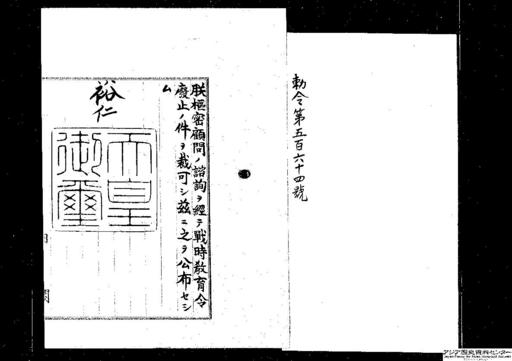 勅令第五百六十四號
朕樞密顧問ノ諮詢ヲ經テ戰時教育令
廢止ノ件ヲ裁可シ玆ニ之ヲ公布セシ
ム
裕仁
天皇
御璽
アジア歴史資料センター